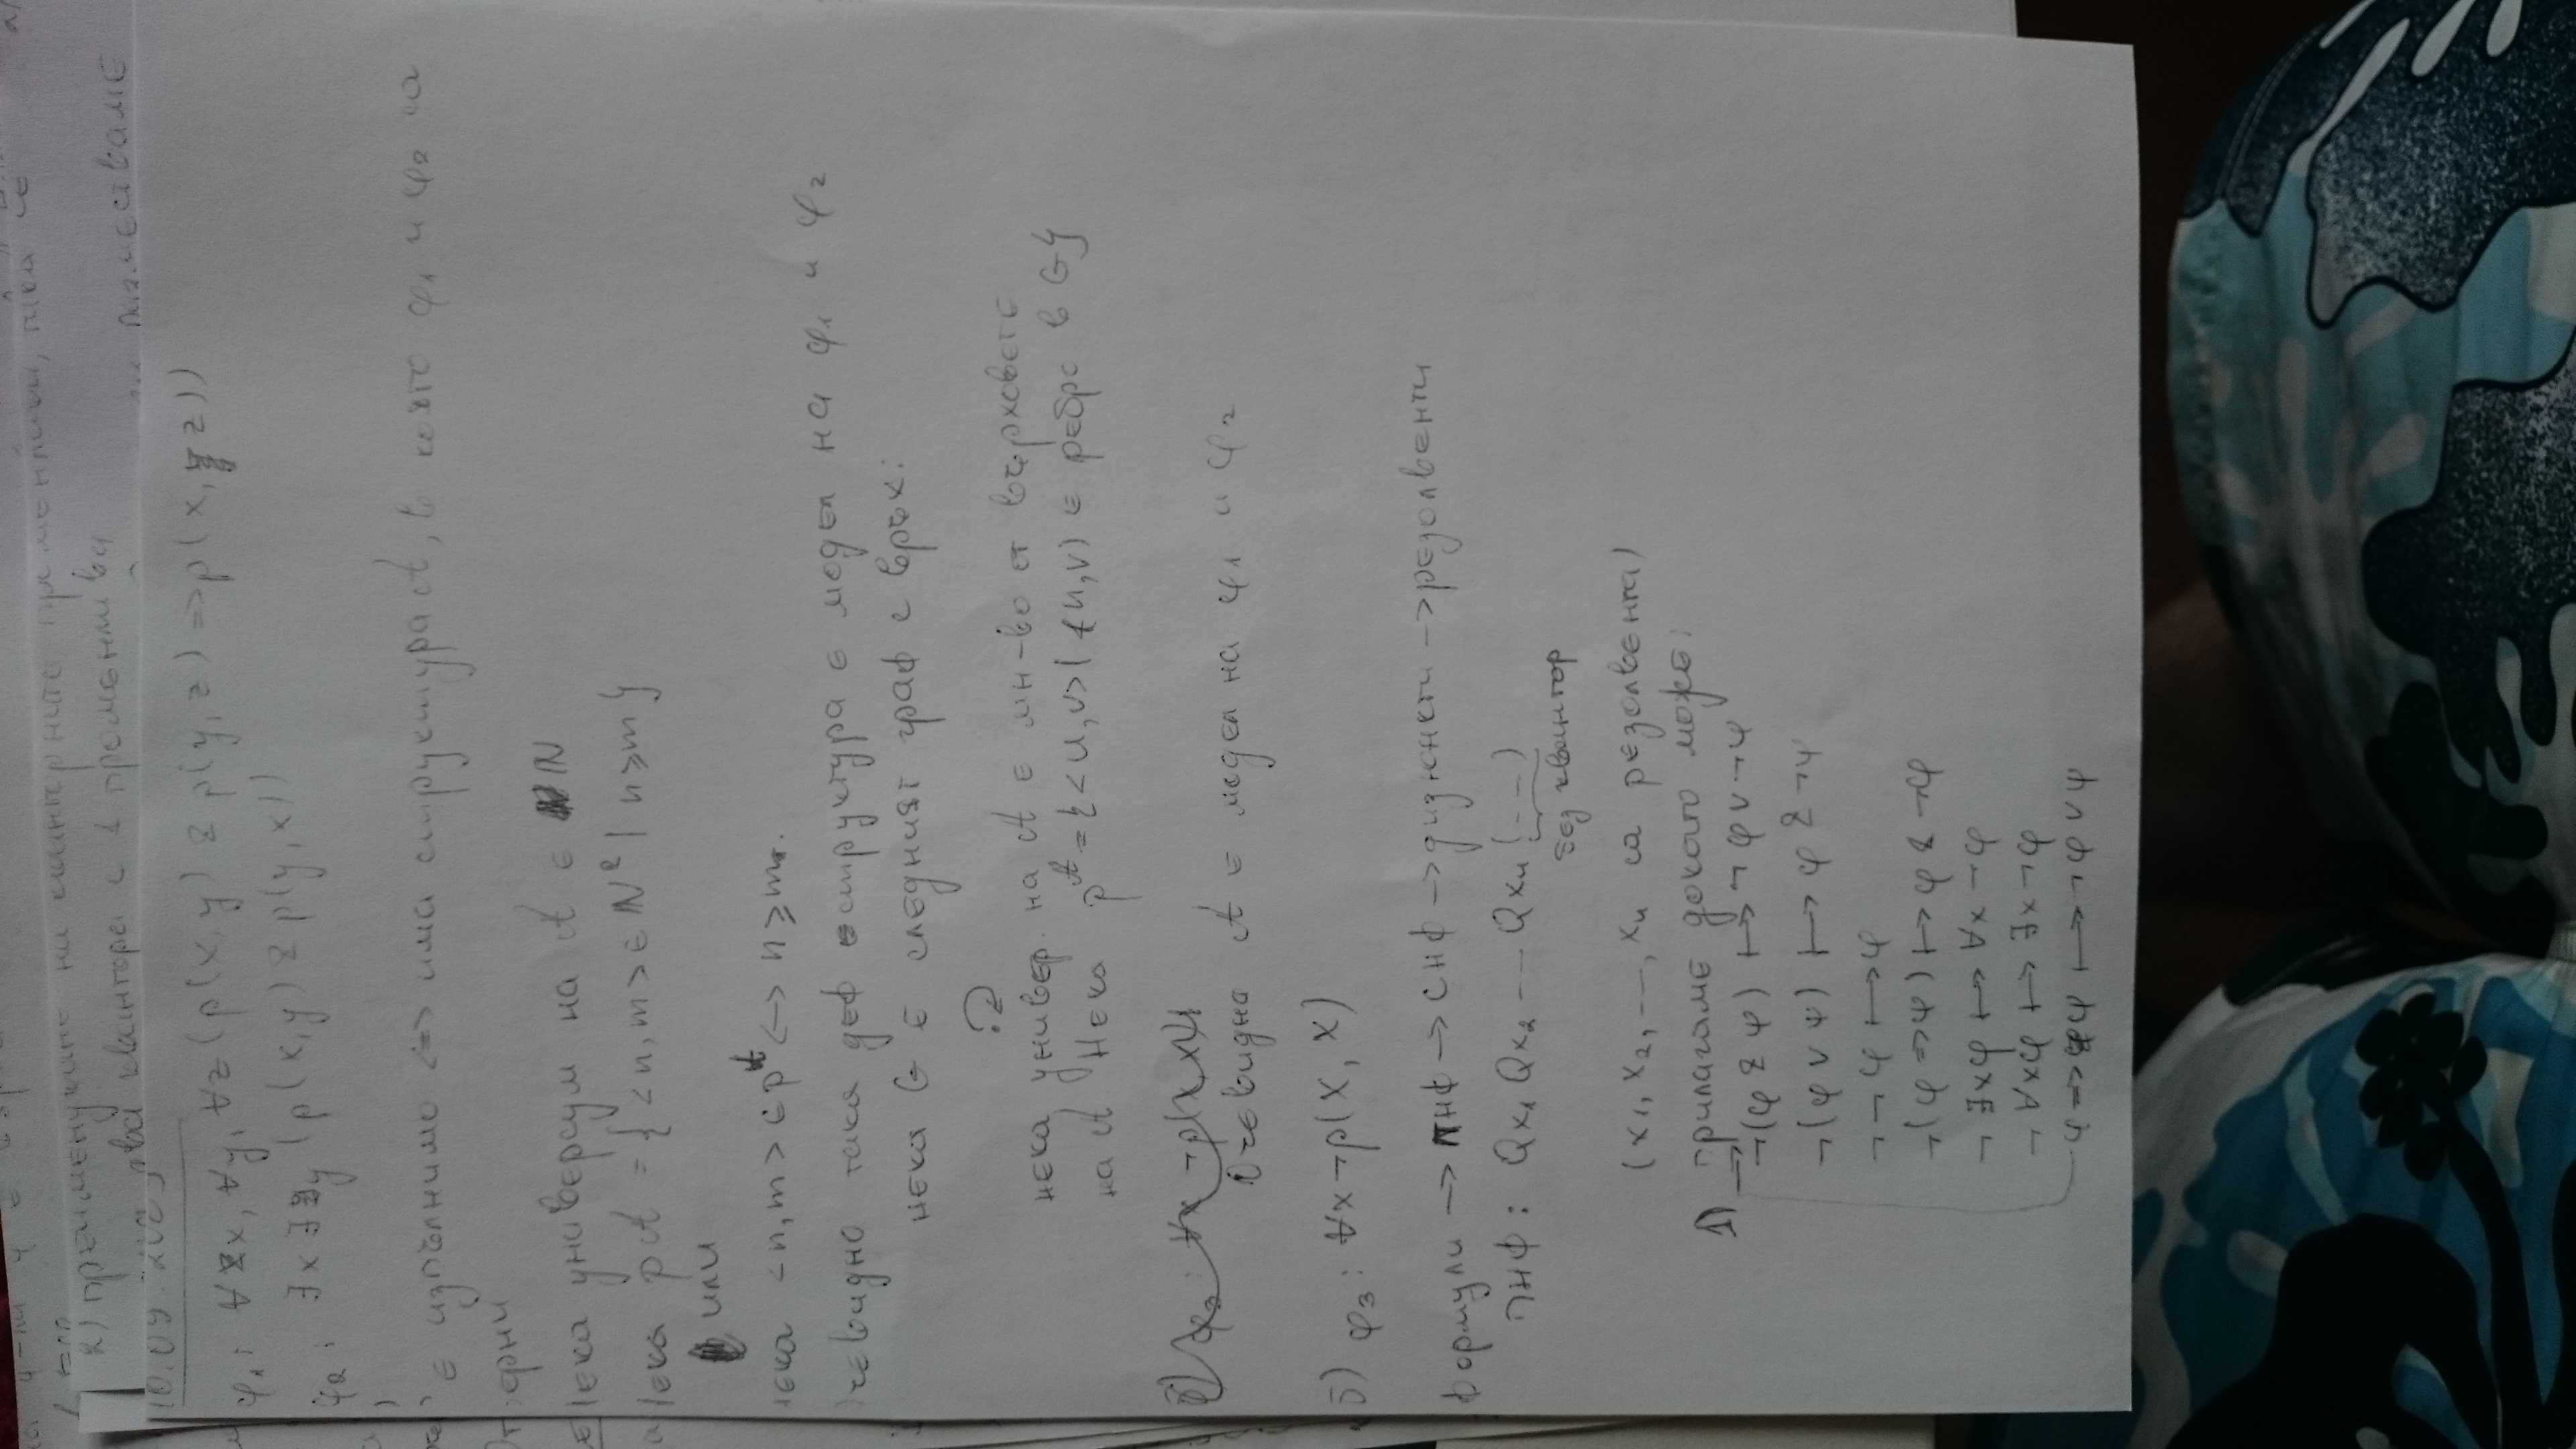 2) преименуване на
два квантора с 1 променлива
10.09.
φ₁: ∀x, ∀y, ∀z (p(x,y) & p(y,z) => p(x,z))
φ₂: ∃x ∃y (p(x,y) & p(y,x))
е изпълнимо <=> има структура A, в която φ₁ и φ₂ са
ерни
ека универсум на A е ℕ
ека p^A = {<n,m> ∈ ℕ² | n≥m}
или
ека <n,m> ∈ p^A <-> n≥m.
чевидно така деф структура е модел на φ₁ и φ₂
нека G е следният граф с връх:
нека универ. на A е мн-во от върховете
на A Нека p^A = {<u,v> | (u,v) е ребро в G}
Очевидно A е модел на φ₁ и φ₂
б) φ₃: ∀x ¬p(x,x)
формули -> ПНФ -> СНФ -> дизюнкти -> резолвенти
ПНФ: Qx₁ Qx₂ --- Qxₙ (---)
без квантор
(x₁, x₂, ---, xₙ са резолвента)
1) прилагаме докато може:
¬(φ & ψ) ↦ ¬φ ∨ ¬ψ
¬(φ ∨ ψ) ↦ ¬φ & ¬ψ
¬¬φ ↦ φ
¬(φ => ψ) ↦ φ & ¬ψ
¬∃xφ ↦ ∀x¬φ
¬∀xφ ↦ ∃x¬φ
φ => ψ ↦ ¬φ ∨ ψ